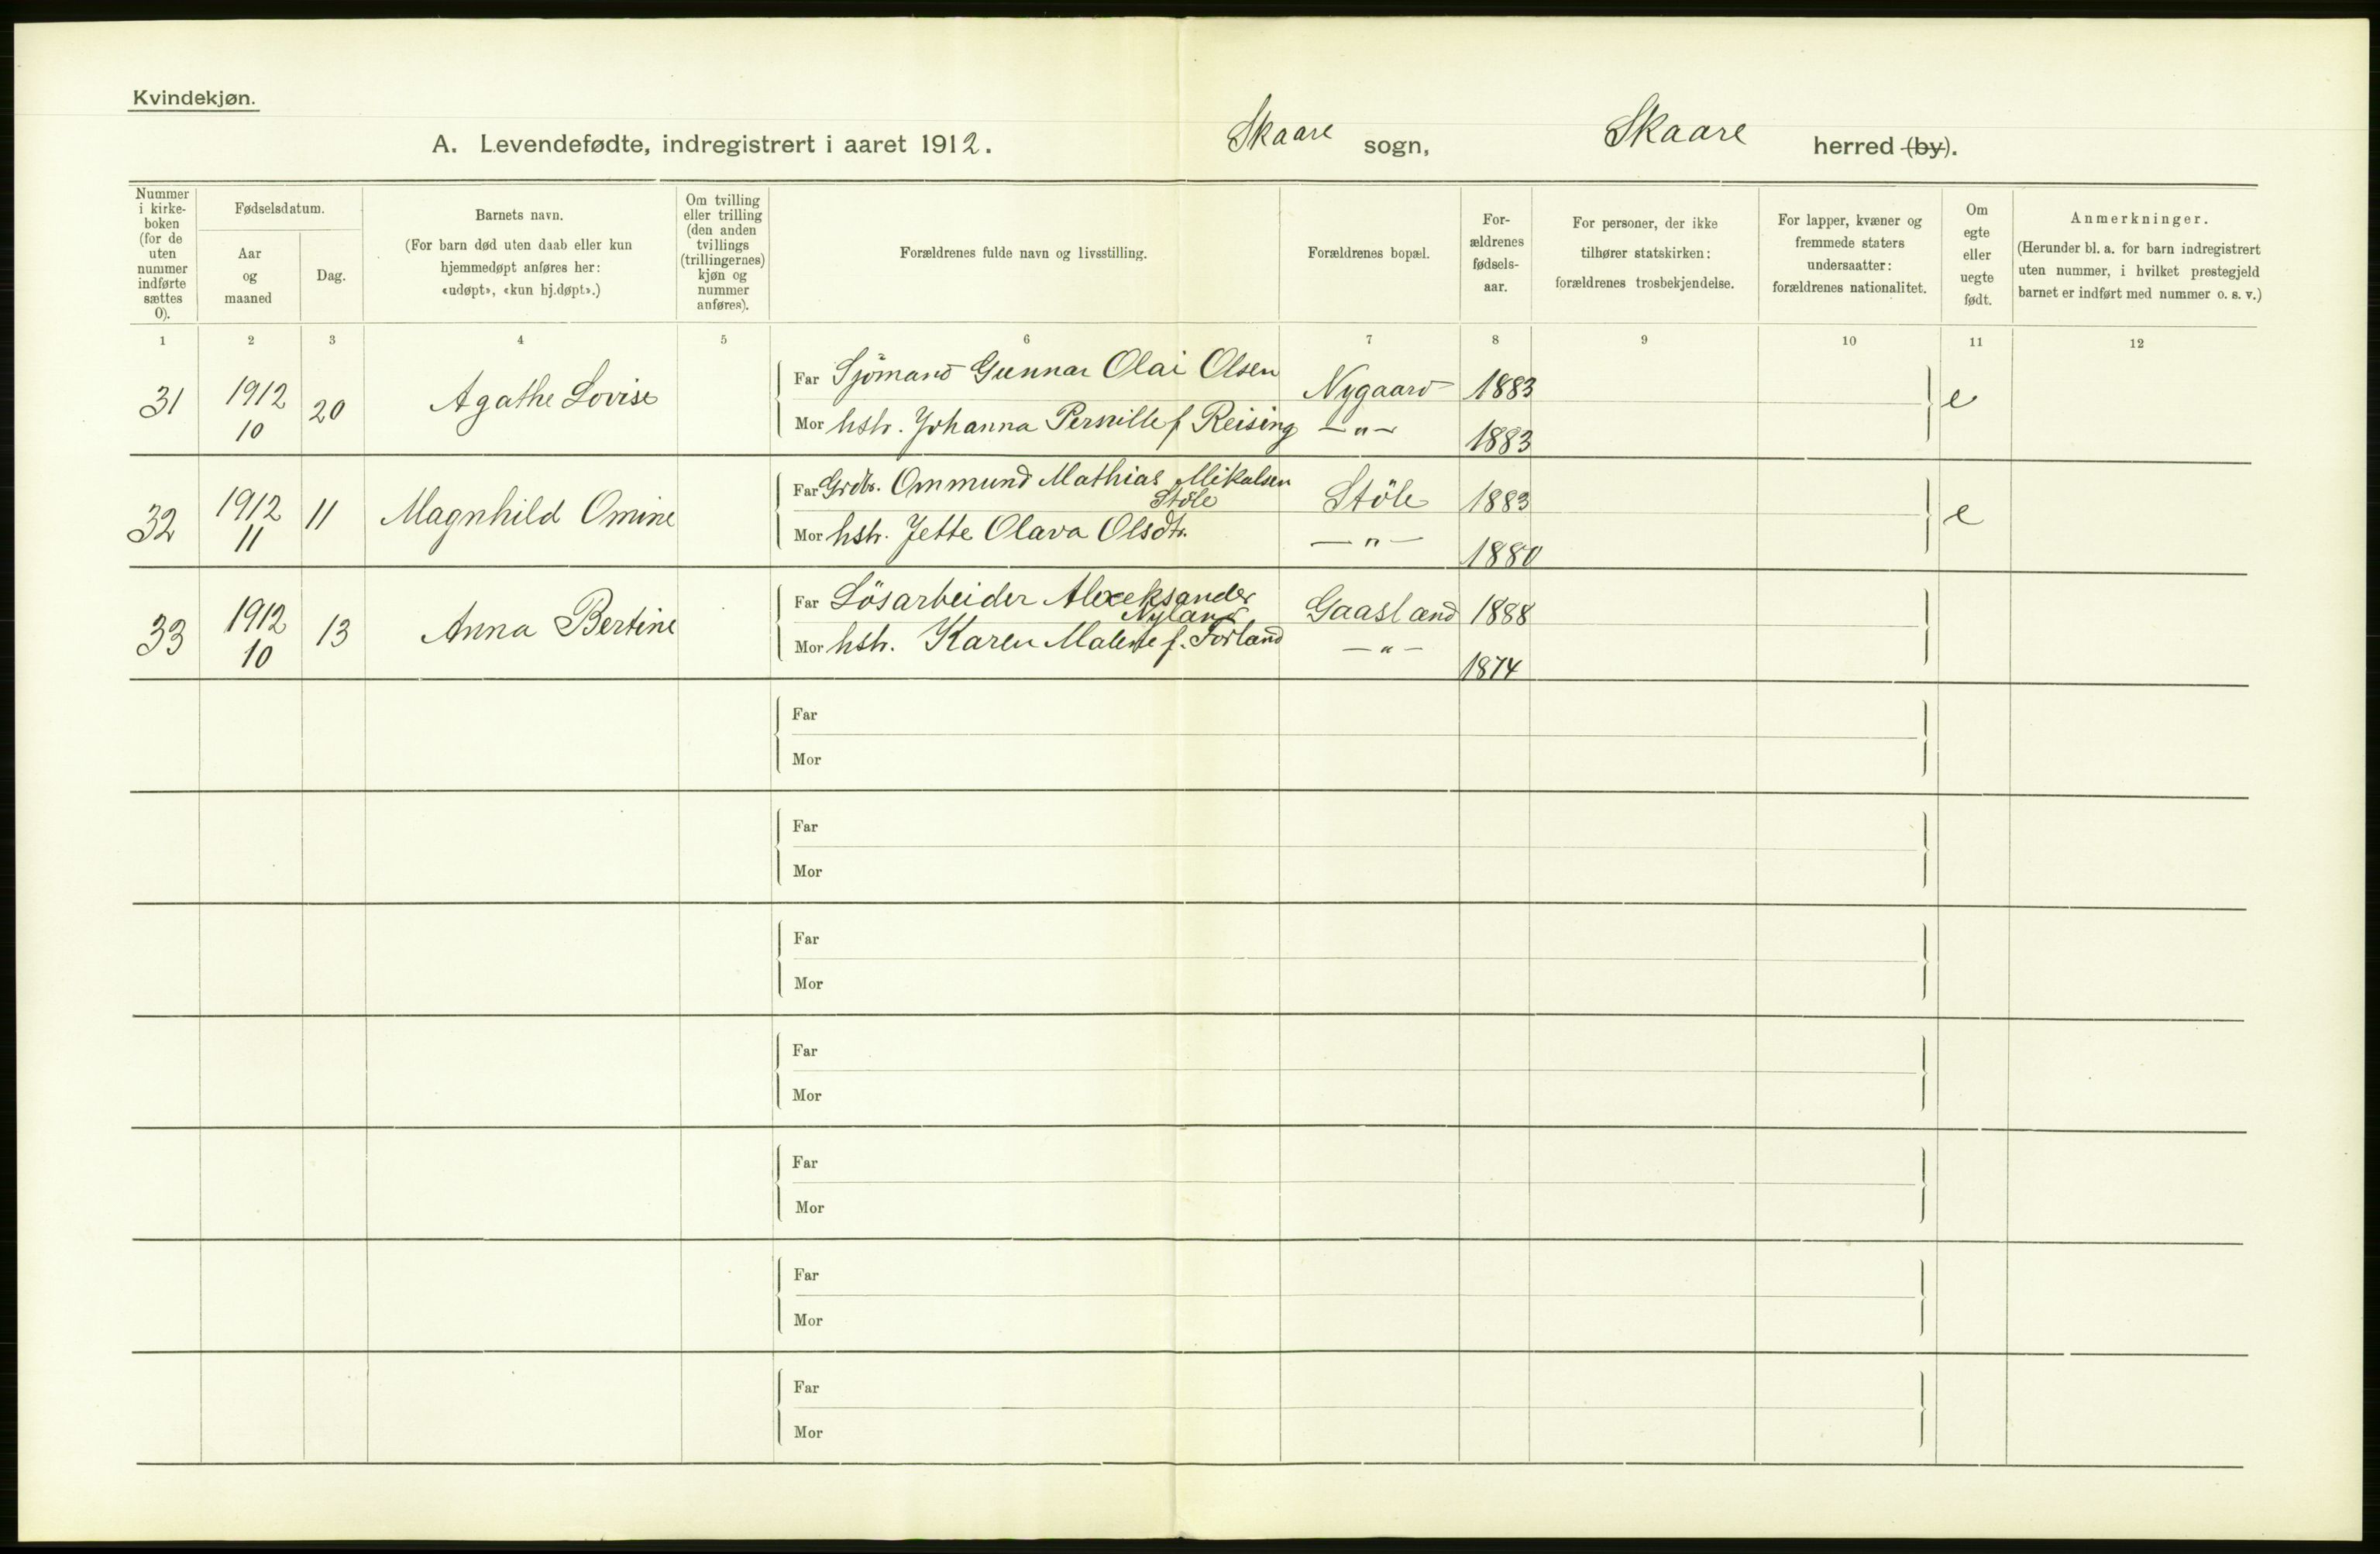 Kvindekjøn.
A. Levendefødte, indregistrert i aaret 1912. Skaare sogn, Skaare herred (by).
Nummer i kirke- boken (for de uten nummer indførte sættes 0).
Fødselsdatum.
Aar og maaned
Dag.
Barnets navn.
(For barn død uten daab eller kun
hjemmedøpt anføres her:
«udøpt», «kun hj.døpt».)
Om tvilling
eller trilling
(den anden
tvillings
(trillingernes)
kjøn og
nummer
anføres).
Forældrenes fulde navn og livsstilling.
Forældrenes bopæl.
For-
ældrenes
fødsels-
aar.
For personer, der ikke
tilhører statskirken:
forældrenes trosbekjendelse.
For lapper, kvæner og
fremmede staters
undersaatter:
forældrenes nationalitet.
Om
egte
eller
uegte
født.
Anmerkninger.
(Herunder bl. a. for barn indregistrert
uten nummer, i hvilket prestegjeld
barnet er indført med nummer o. s. v.)
1 2 3 4 5 6 7 8 9 10 11 12
31 1912 10 20 Agathe Lovise
Far Sjömand Gunnar Olai Olsen Nygaard 1883 e
Mor hstr. Johanna Pernille f Reising —"— 1883
32 1912 11 11 Magnhild Omine
Far Grdbr. Ommund Mathias Mikalsen Stöle Stöle 1883 e
Mor hstr. Jette Olava Olsdtr. —"— 1880
33 1912 10 13 Anna Bertine
Far Lösarbeider Alexeksander Nyland Gaasland 1888
Mor hstr. Karen Malene f. Forland —"— 1874
Far
Mor
Far
Mor
Far
Mor
Far
Mor
Far
Mor
Far
Mor
Far
Mor